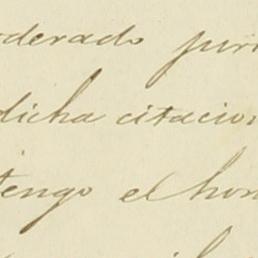 oderado juri
dicha citacion
tengo el hon